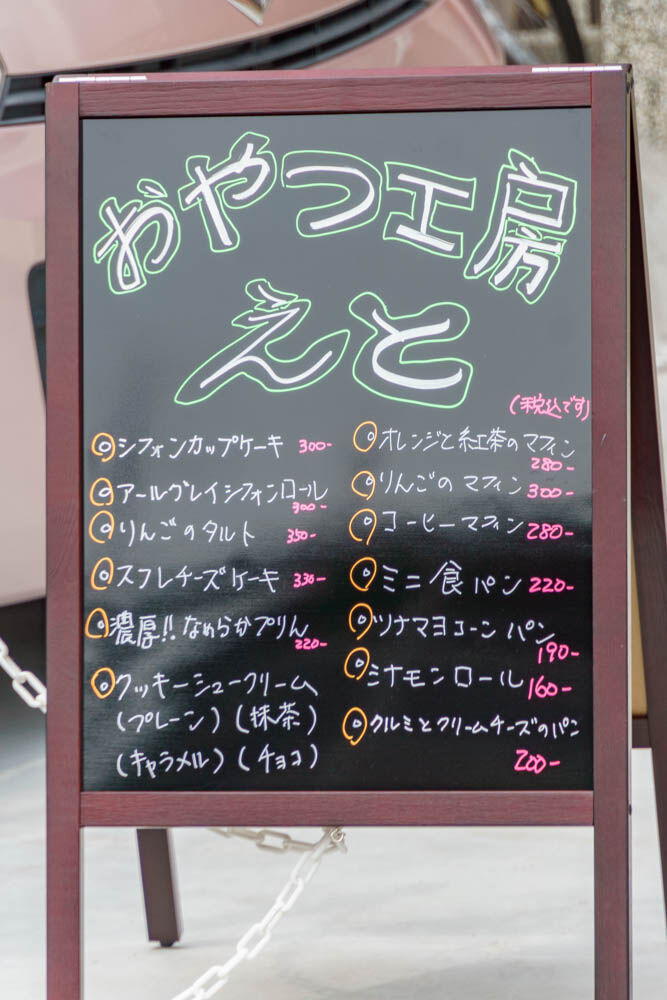 おやつ工房
えと
(税込です)
シフォンカップケーキ 300-
アールグレイシフォンロール
300-
りんごのタルト 350-
スフレチーズケーキ 330-
濃厚!! なめらかプリん
220-
クッキーシュークリーム
(プレーン) (抹茶)
(キャラメル) (チョコ)
オレンジと紅茶のマフィン
280-
りんごのマフィン 300-
コーヒーマフィン 280-
ミニ食パン 220-
ツナマヨコーンパン
190-
ミナモンロール 160-
クルミとクリームチーズのパン
200-